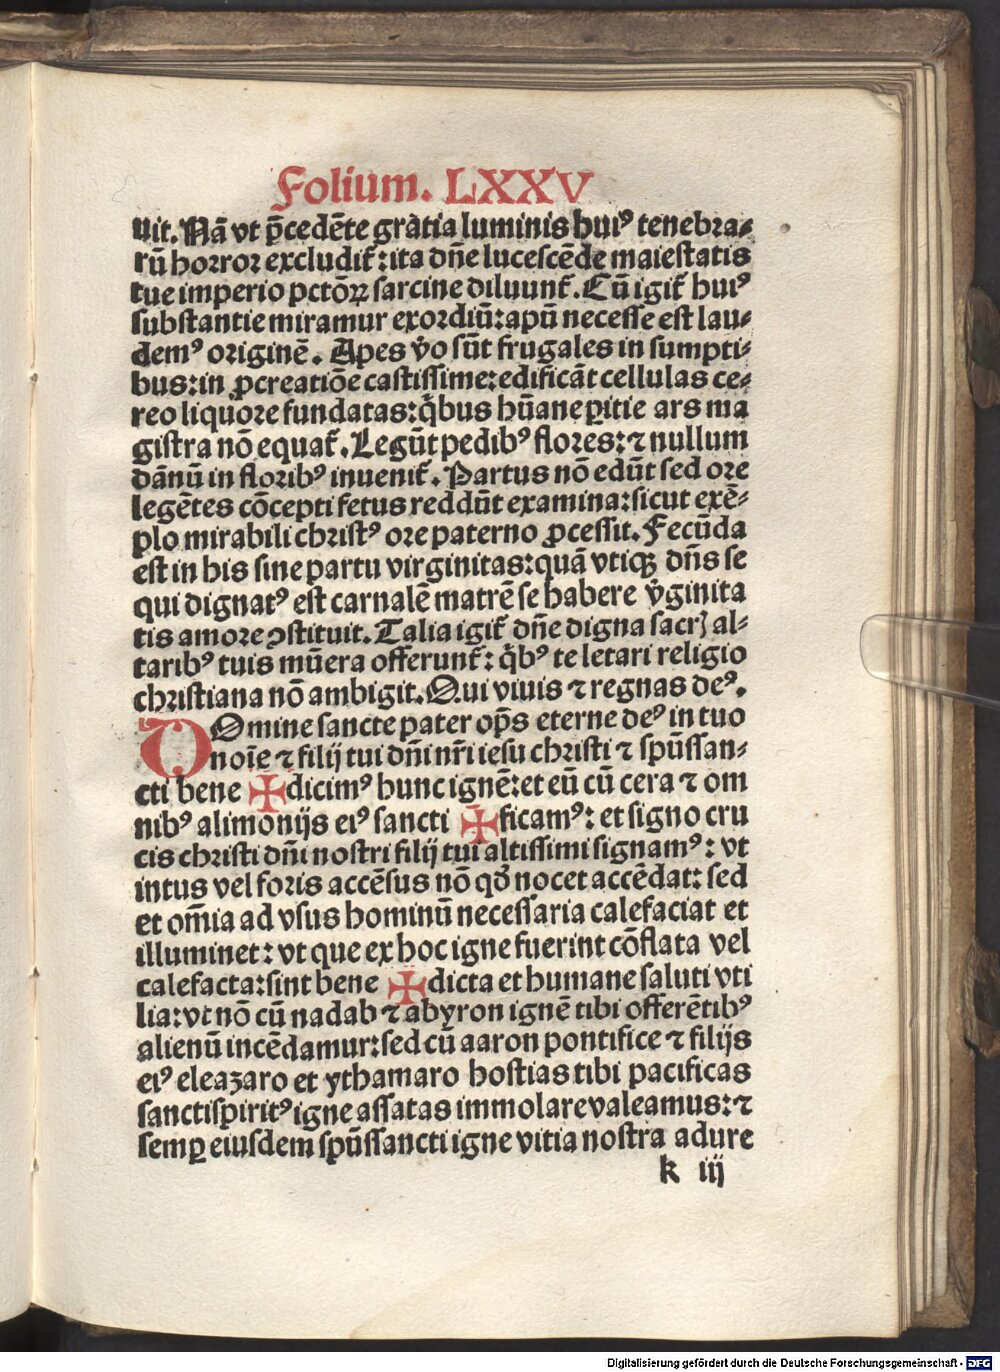 Folium. LXXV
uit. Nã vt p̃cedẽte gratia luminis huiꝰ tenebra⸗
rũ horror excludit᷑: ita dñe lucescẽde maiestatis
tue imperio pctõꝝ sarcine diluunt᷑. Cũ igit᷑ huiꝰ
substantie miramur exordiũ: apũ necesse est lau⸗
demꝰ originẽ. Apes v̾o sũt frugales in sumpti⸗
bus: in ꝓcreatiõe castissime: edificãt cellulas ce⸗
reo liquore fundatas: q̃bus hũane ꝑitie ars ma
gistra nõ equat᷑. Legũt pedibꝰ flores: ⁊ nullum
dãnũ in floribꝰ inuenit᷑. Partus nõ edũt sed ore
legẽtes cõcepti fetus reddũt examina: sicut exẽ⸗
plo mirabili christꝰ ore paterno ꝓcessit. Fecũda
est in his sine partu virginitas: quã vtiqꝫ dñs se
qui dignatꝰ est carnalẽ matrẽ se habere v̾ginita
tis amore ꝯstituit. Talia igit᷑ dñe digna sacrꝭ al⸗
taribꝰ tuis mũera offerunt᷑: q̃bꝰ te letari religio
christiana nõ ambigit. Qui viuis ⁊ regnas deꝰ.
DOmine sancte pater op̃s eterne deꝰ in tuo
noĩe ⁊ filij tui dñi nr̃i iesu christi ⁊ spũssan⸗
cti bene ✠ dicimꝰ hunc ignẽ: et eũ cũ cera ⁊ om
nibꝰ alimonijs eiꝰ sancti ✠ ficamꝰ: et signo cru
cis christi dñi nostri filij tui altissimi signamꝰ: vt
intus vel foris accẽsus nõ qď nocet accẽdat: sed
et om̃ia ad vsus hominũ necessaria calefaciat et
illuminet: vt que ex hoc igne fuerint cõflata vel
calefacta: sint bene ✠ dicta et humane saluti vti
lia: vt nõ cũ nadab ⁊ abyron ignẽ tibi offerẽtibꝰ
alienũ incẽdamur: sed cũ aaron pontifice ⁊ filijs
eiꝰ eleazaro et ythamaro hostias tibi pacificas
sanctispiritꝰ igne assatas immolare valeamus: ⁊
semꝑ eiusdem spũssancti igne vitia nostra adure
k iij
Digitalisierung gefördert durch die Deutsche Forschungsgemeinschaft - DFG